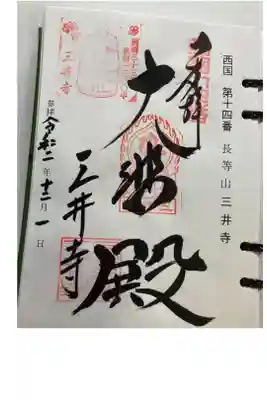 西国 第十四番 長等山 三井寺
奉拝
大悲殿
三井寺
参拝 令和二年十二月一日
三井寺